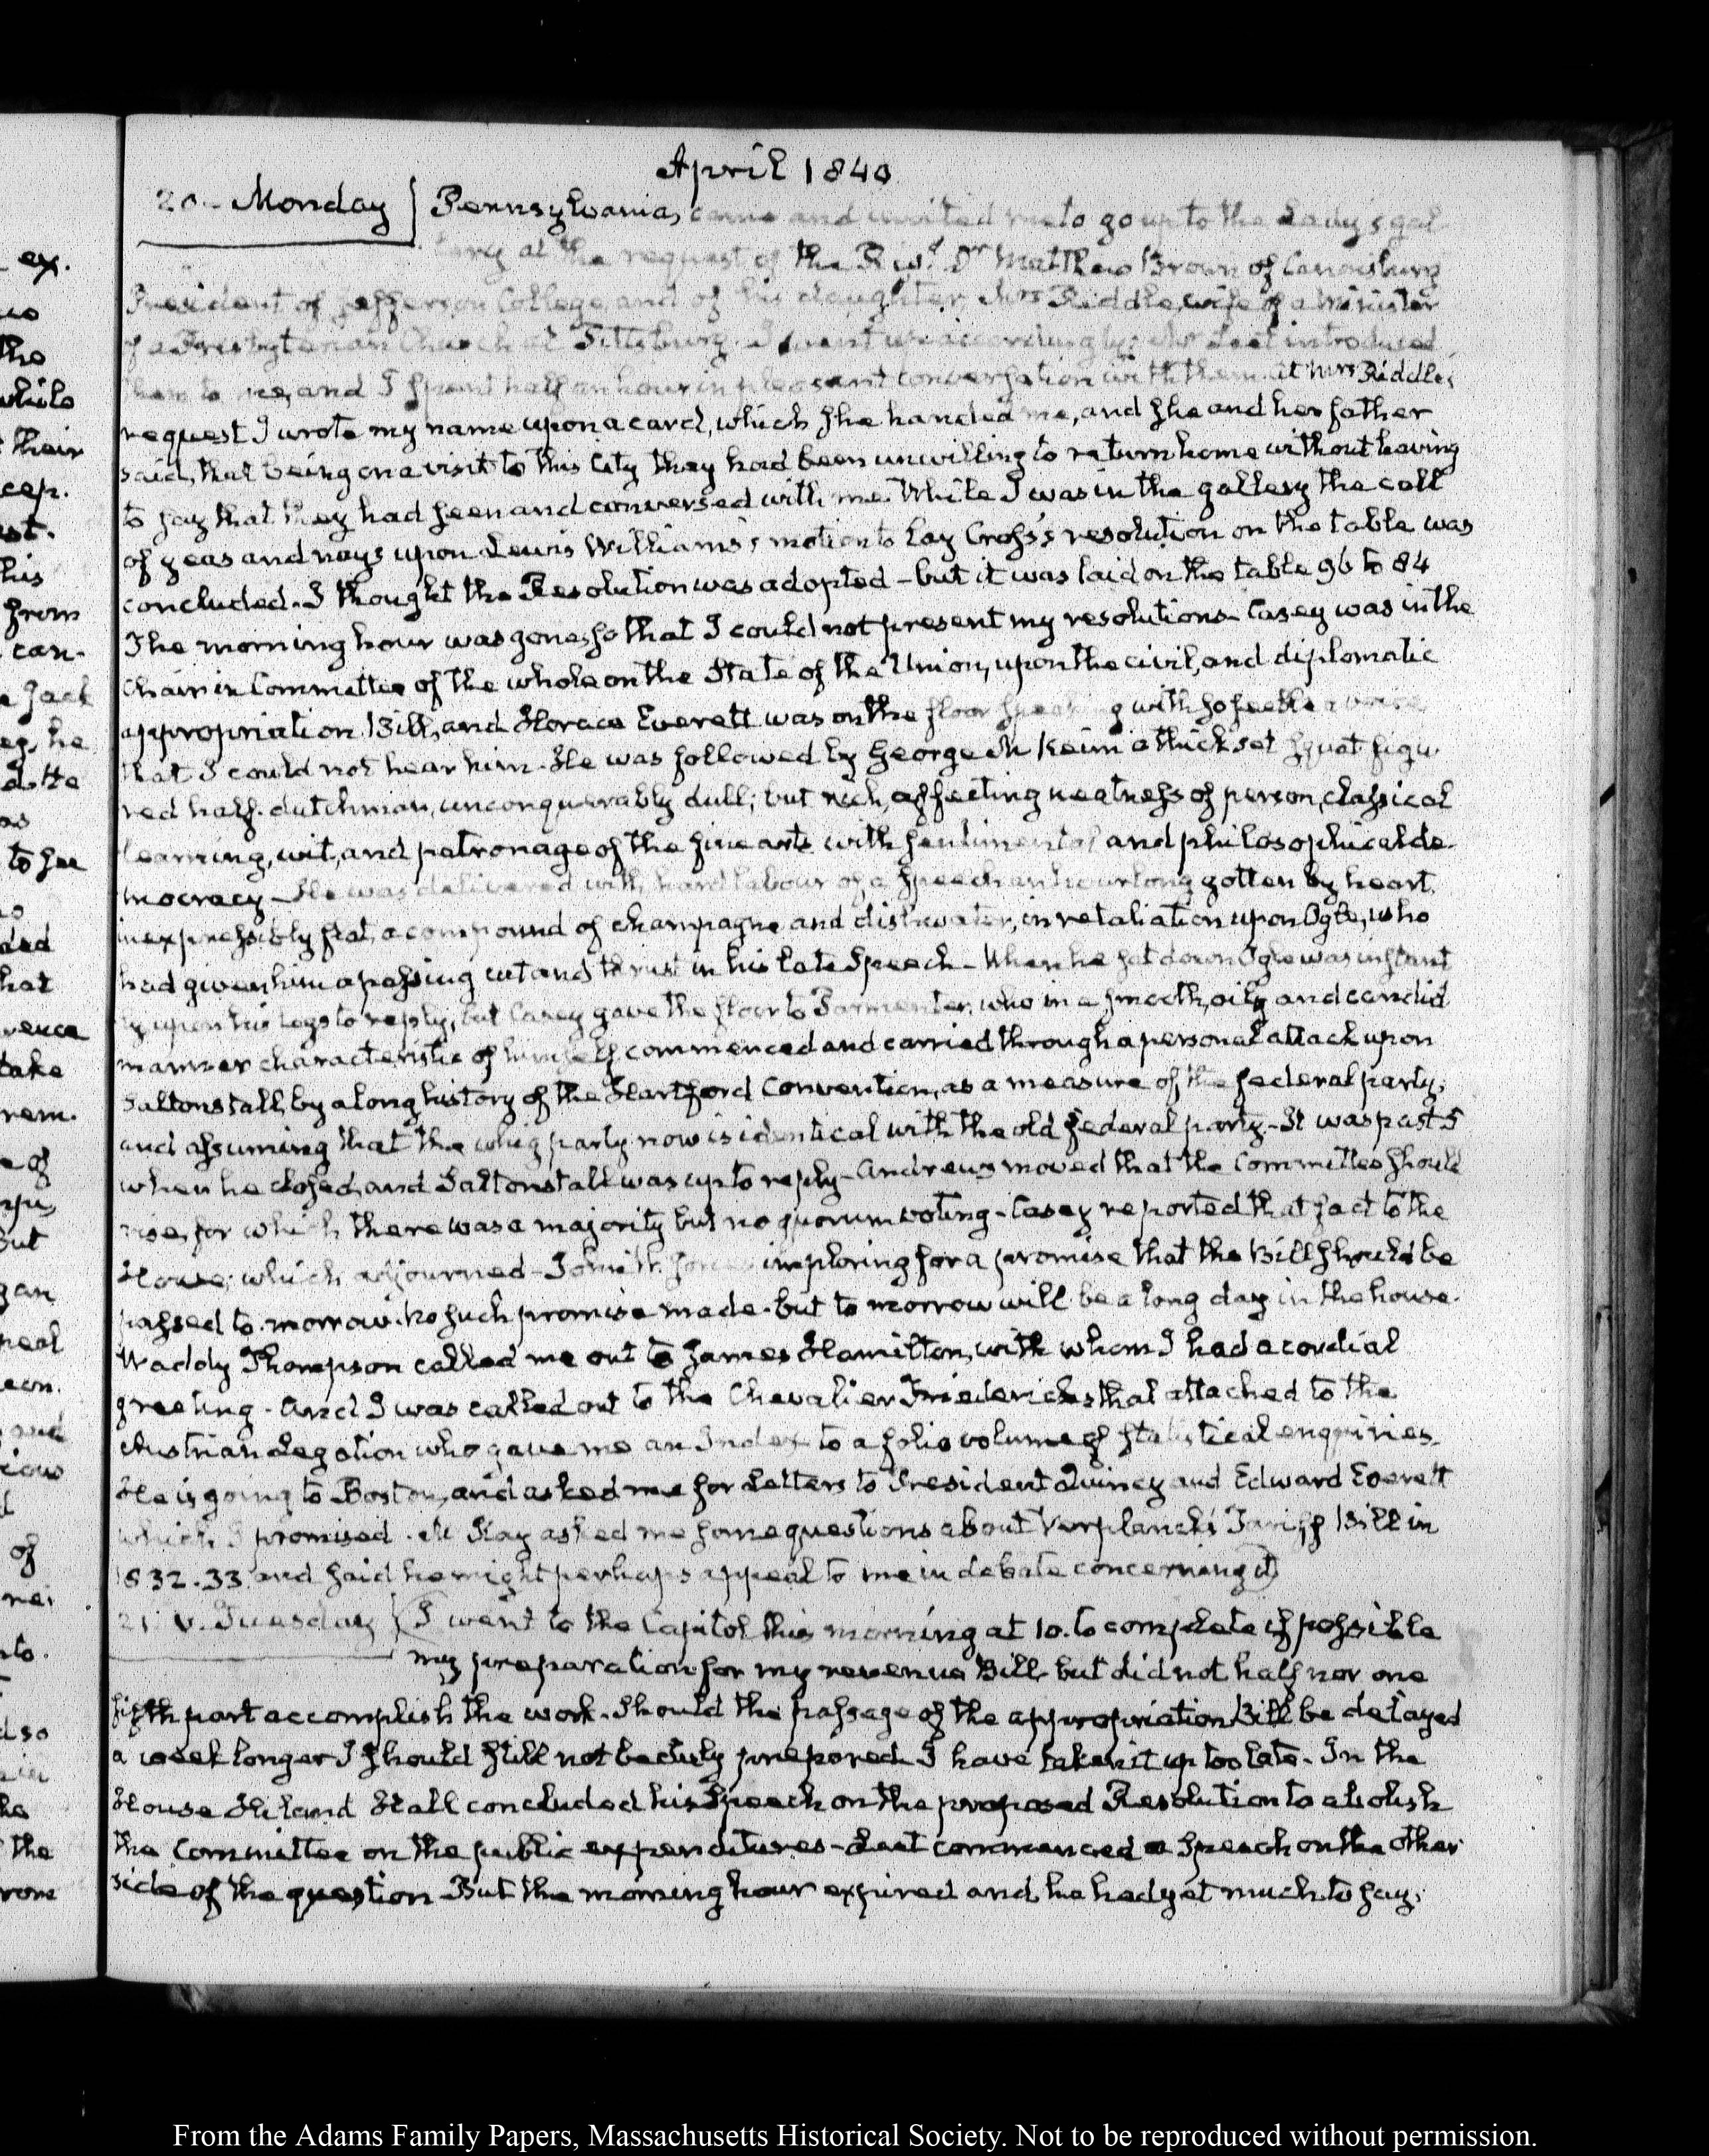 April 1840
20. Monday Pennsylvania, came and invited me to go up to the Lady's gal
lery at the request of the Revd. Dr. Matthew Brown of Canonsburg
President of Jefferson College, and of his daughter Mrs Riddle, wife of a Minister
of a Presbyterian Church at Pittsburg. I went up accordingly; Mr Leet introduced
them to me, and I spent half an hour in pleasant conversation with them. At Mrs Riddle's
request I wrote my name upon a card, which she handed me, and she and her father
said, that being on a visit to this City they had been unwilling to return home without having
to say that they had seen and conversed with me. While I was in the gallery the call
of yeas and nays upon Lewis Williams's motion to lay Cross's resolution on the table was
concluded. I thought the Resolution was adopted – but it was laid on the table 96 to 84
The morning hour was gone, so that I could not present my resolutions – Casey was in the
Chair in Committee of the whole on the State of the Union, upon the civil, and diplomatic
appropriation Bill, and Horace Everett was on the floor speaking with so feeble a voice
that I could not hear him. He was followed by George M Keim a thick set squat figu
red half-dutchman, unconquerably dull; but rich, affecting neatness of person, classical
learning, wit, and patronage of the fine arts with sentimental and philosophical de-
mocracy – He was delivered with hard labour of a Speech an hour long gotten by heart,
inexpressibly flat, a compound of champagne and dishwater, in retaliation upon Ogle, who
had given him a passing cut and thrust in his late Speech – When he sat down Ogle was instant
ly upon his legs to reply, but Casey gave the floor to Parmenter, who in a smooth, oily and candid
manner characteristic of himself commenced and carried through a personal attack upon
Saltonstall, by a long history of the Hartford Convention, as a measure of the federal party;
and assuming that the whig party now is identical with the old federal party – It was past 5
when he closed, and Saltonstall was up to reply – Andrews moved that the Committee should
rise, for which there was a majority but no quorum voting – Casey reported that fact to the
House; which adjourned – John W. Jones imploring for a promise that the Bill should be
passed to-morrow. No such promise made. but to morrow will be a long day in the house.
Waddy Thompson called me out to James Hamilton, with whom I had a cordial
greeting. And I was called out to the Chevalier Friederichsthal attached to the
Austrian Legation who gave me an Index to a folio volume of statistical enquiries.
He is going to Boston, and asked me for Letters to President Quincy and Edward Everett
which I promised. Mc Kay asked me some questions about Verplanck's Tariff Bill in
1832.33. and said he might perhaps appeal to me in debate concerning it
21. V. Tuesday I went to the Capitol this morning at 10. to complete if possible
my preparation for my revenue Bill but did not half nor one
fifth part accomplish the work. Should the passage of the appropriation Bill be delayed
a week longer I should still not be duly prepared. I have taken it up too late. In the
House Hiland Hall concluded his Speech on the proposed Resolution to abolish
the Committee on the public expenditures – Leet commenced a Speech on the other
side of the question But the morning hour expired and he had yet much to say.
ex.
the
while
their
cep.
his
from
can-
to see
ded
hat
take
rem.
of
out
and
of
to.
the
From the Adams Family Papers, Massachusetts Historical Society. Not to be reproduced without permission.